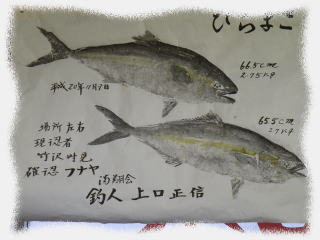 ひらまさ
66.5cm
2.75kg
平成20年11月9日
65.5cm
2.7kg
場所 左右
現認者
竹沢 時光
確認 フナヤ
満潮会
釣人 上口正信